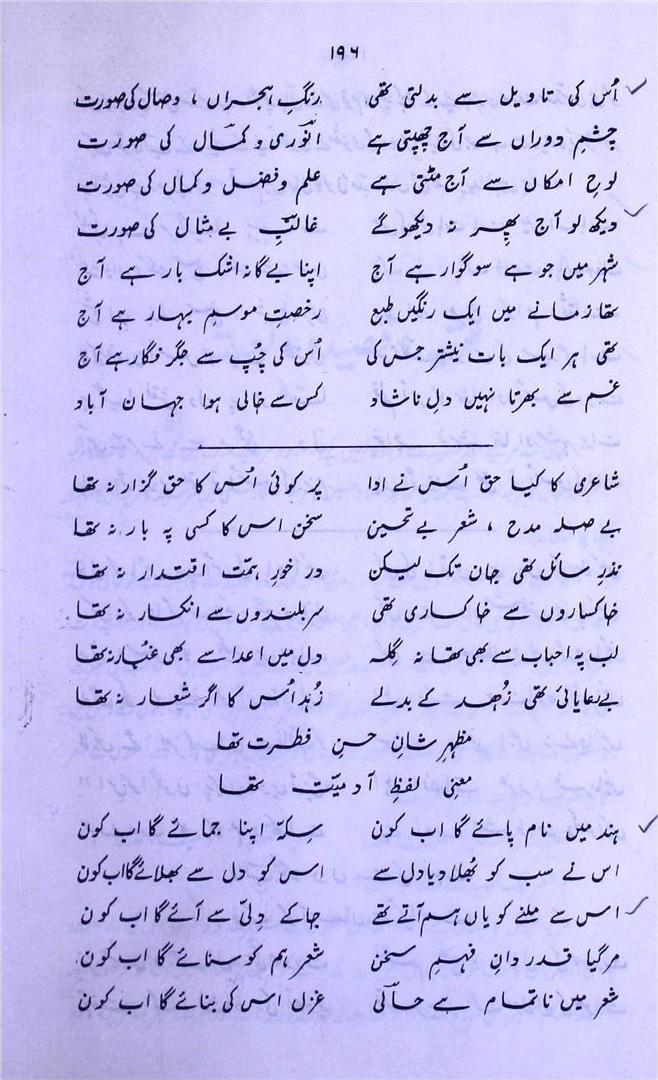 ۱۹۶
اُس کی تاویل سے بدلتی تھی رنگِ ہجراں ، وصال کی صورت
چشمِ دوراں سے آج چھپتی ہے انوریؔ و کمالؔ کی صورت
لوحِ امکاں سے آج مٹتی ہے علم و فضل و کمال کی صورت
دیکھ لو آج پھر نہ دیکھو گے غالبِؔ بے مثال کی صورت
شہر میں جو ہے سوگوار ہے آج اپنا بے گانہ اشک بار ہے آج
تھا زمانے میں ایک رنگیں طبع رخصتِ موسمِ بہار ہے آج
تھی ہر ایک بات نیشتر جس کی اُس کی چُپ سے جگر فگار ہے آج
غم سے بھرتا نہیں دلِ ناشاد کس سے خالی ہوا جہان آباد
شاعری کا کیا حق اُس نے ادا پر کوئی اُس کا حق گزار نہ تھا
بے صلہ مدح ، شعر بے تحسین سخن اس کا کسی پہ بار نہ تھا
نذرِ سائل تھی جان تک لیکن در خورِ ہمّت اقتدار نہ تھا
خاکساروں سے خاکساری تھی سر بلندوں سے انکسار نہ تھا
لب پہ احباب سے بھی تھا نہ گِلہ دل میں اعدا سے بھی غبار نہ تھا
بے ریائی تھی زُھد کے بدلے زُہد اُس کا اگر شعار نہ تھا
مظہرِ شانِ حسنِ فطرت تھا
معنیِ لفظِ آدمیّت تھا
ہند میں نام پائے گا اب کون سِکّہ اپنا جمائے گا اب کون
اس نے سب کو بُھلا دیا دل سے اس کو دل سے بھلائے گا اب کون
اس سے ملنے کو یاں ہم آتے تھے جا کے دِلّی سے آئے گا اب کون
مر گیا قدردانِ فہمِ سخن شعر ہم کو سنائے گا اب کون
شعر میں ناتمام ہے حالیؔ غزل اس کی بنائے گا اب کون